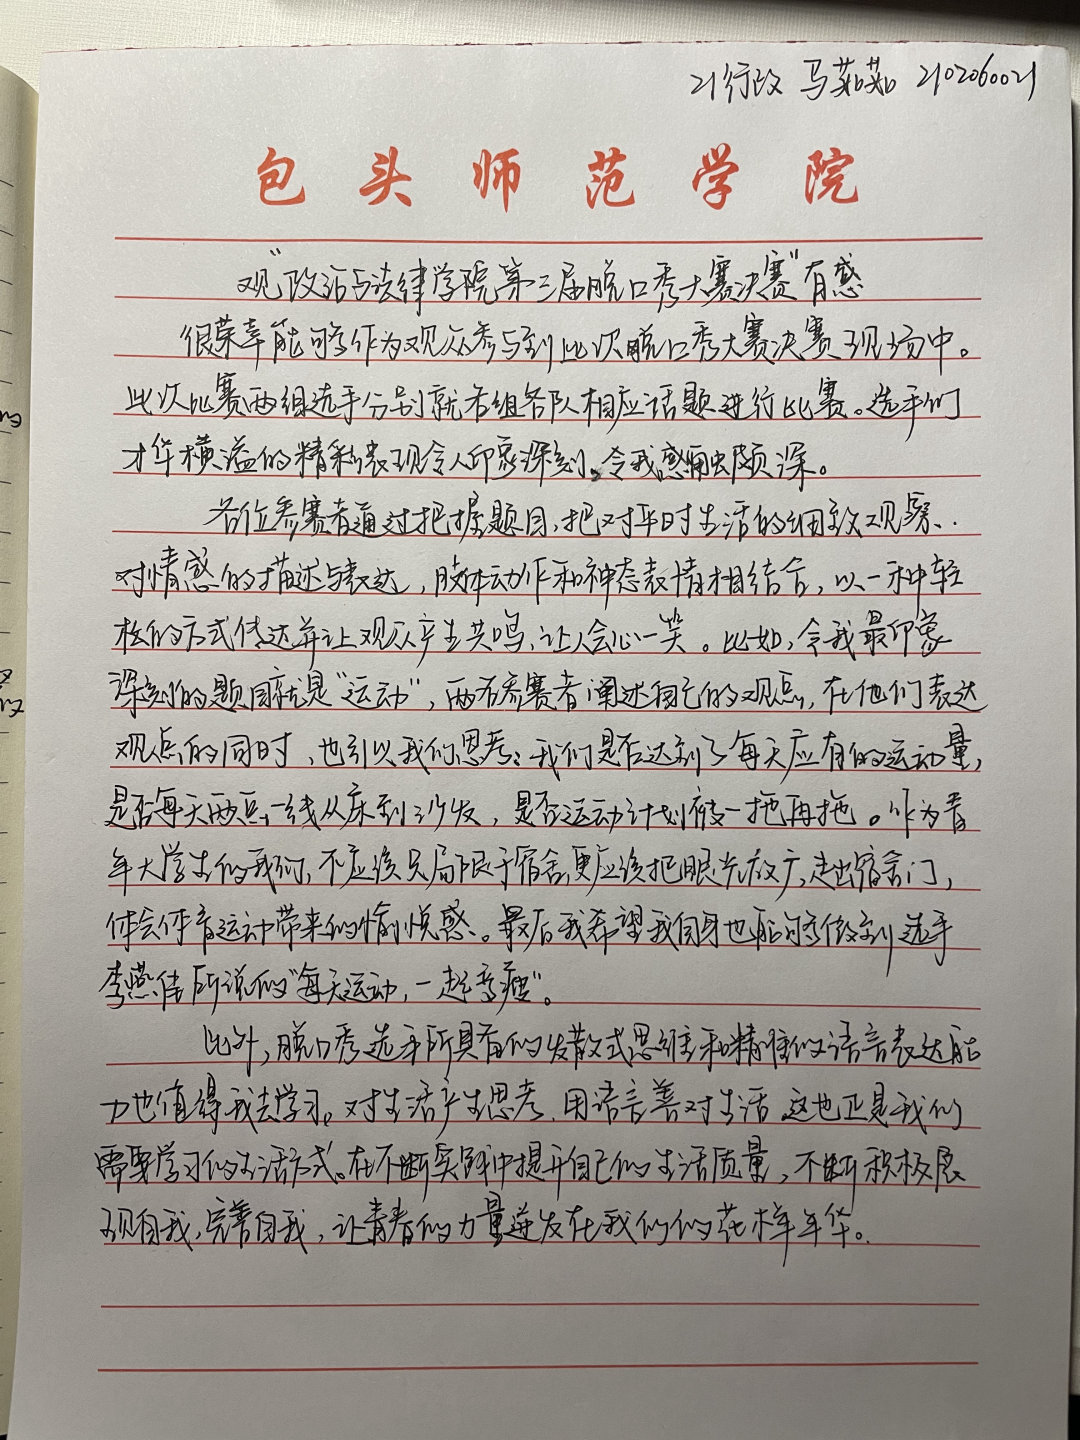 21行政 马茹茹 2102060021
包头师范学院
观“政治与法律学院第三届脱口秀大赛决赛”有感
很荣幸能够作为观众参与到此次脱口秀大赛决赛现场中。
此次比赛两组选手分别就各组各队相应话题进行比赛。选手们
才华横溢的精彩表现令人印象深刻。令我感触颇深。
各位参赛者通过把握题目，把对平时生活的细致观察、
对情感的描述与表达，肢体动作和神态表情相结合，以一种轻
松的方式传达并让观众产生共鸣，让人会心一笑。比如，令我最印象
深刻的题目就是“运动”，两名参赛者阐述自己的观点，在他们表达
观点的同时，也引以我们思考：我们是否达到了每天应有的运动量，
是否每天两点一线从床到沙发，是否运动计划被一拖再拖。作为青
年大学生的我们，不应该只局限于宿舍，更应该把眼光放广，走出宿舍门，
体会体育运动带来的愉悦感。最后我希望我自身也能够做到选手
李燕伟所说的“每天运动，一起变瘦”。
此外，脱口秀选手所具有的发散式思维和精准的语言表达能
力也值得我去学习。对生活产生思考，用语言善对生活，这也正是我们
需要学习的生活方式。在不断实践中提升自己的生活质量，不断积极展
现自我，完善自我，让青春的力量迸发在我们的花样年华。